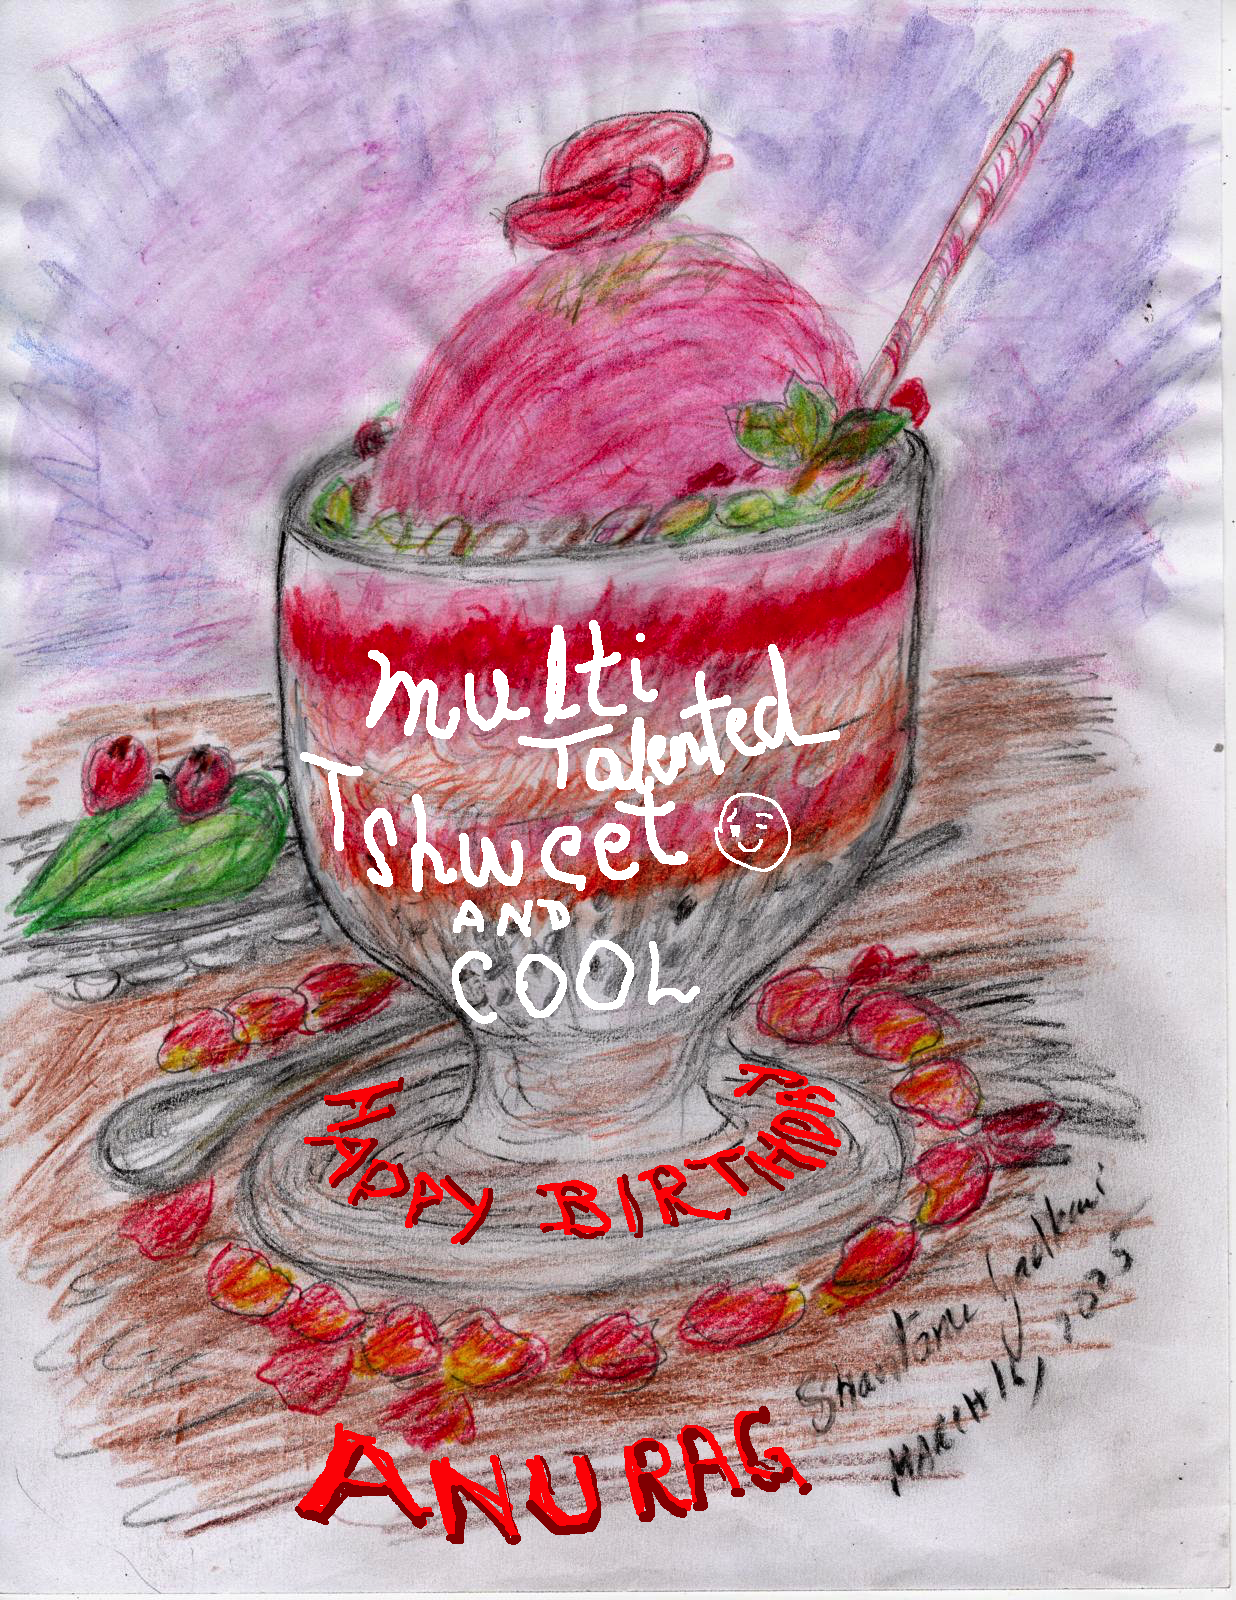 multi
Talented
Tshweet
AND
COOL
HAPPY BIRTHDAY
ANURAG
Shantanu
MARCH 16,